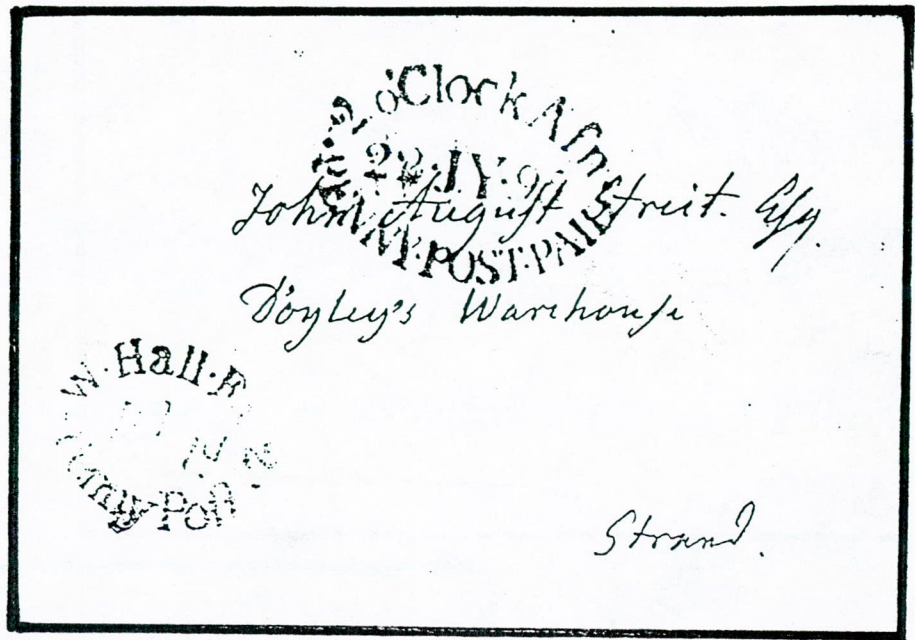 o'Clock Aftn
22 JY 9
PENNY POST PAID
John August Streit. Esq.
D'oyley's Warehouse
W. Hall
Penny Post
Strand.